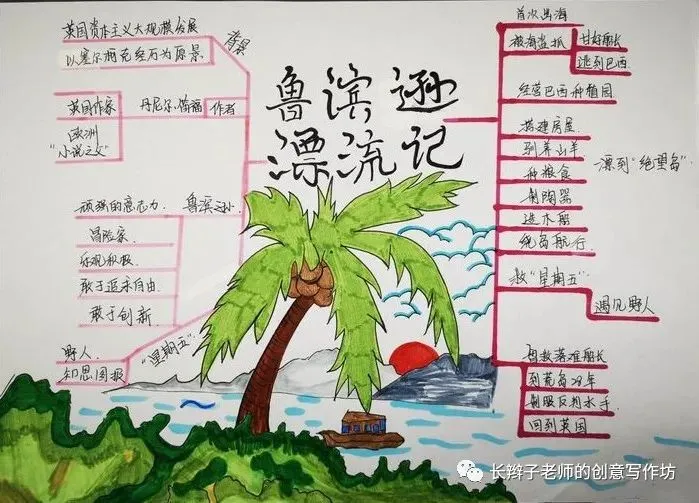 鲁滨逊
漂流记
英国资本主义大规模发展
以塞尔柯克经历为原景
背景
英国作家
丹尼尔·笛福
作者
欧洲
"小说之父"
顽强的意志力
鲁滨逊
冒险家
乐观积极
敢于追求自由
敢于创新
野人
知恩图报
"星期五"
首次出海
被海盗抓
甘好船长
逃到巴西
经营巴西种植园
搭建房屋
驯养山羊
种粮食
制陶器
造木船
绕岛航行
漂到"绝望岛"
救"星期五"
遇见野人
自救落难船长
到荒岛28年
制服反判水手
回到英国
长辫子老师的创意写作坊